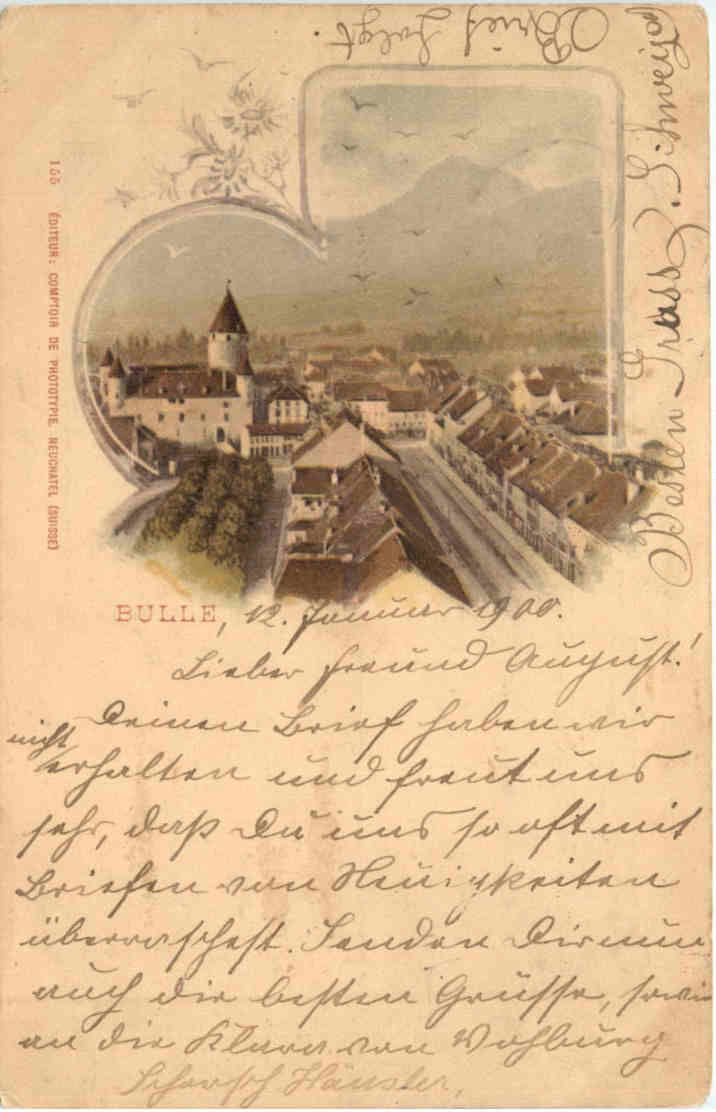 Brief folgt.
Besten Gruss J. Schweizer
155 ÉDITEUR: COMPTOIR DE PHOTOTYPIE, NEUCHATEL (SUISSE)
BULLE, 12. Januar 1900.
Lieber Freund August!
Deinen Brief haben wir
nicht
erhalten und freut uns
sehr, daß Du uns so oft mit
Briefen von Neuigkeiten
überraschest. Senden Dir nun
auch die besten Grüsse, sowie
an die Klara von Vohburg
Häusler,